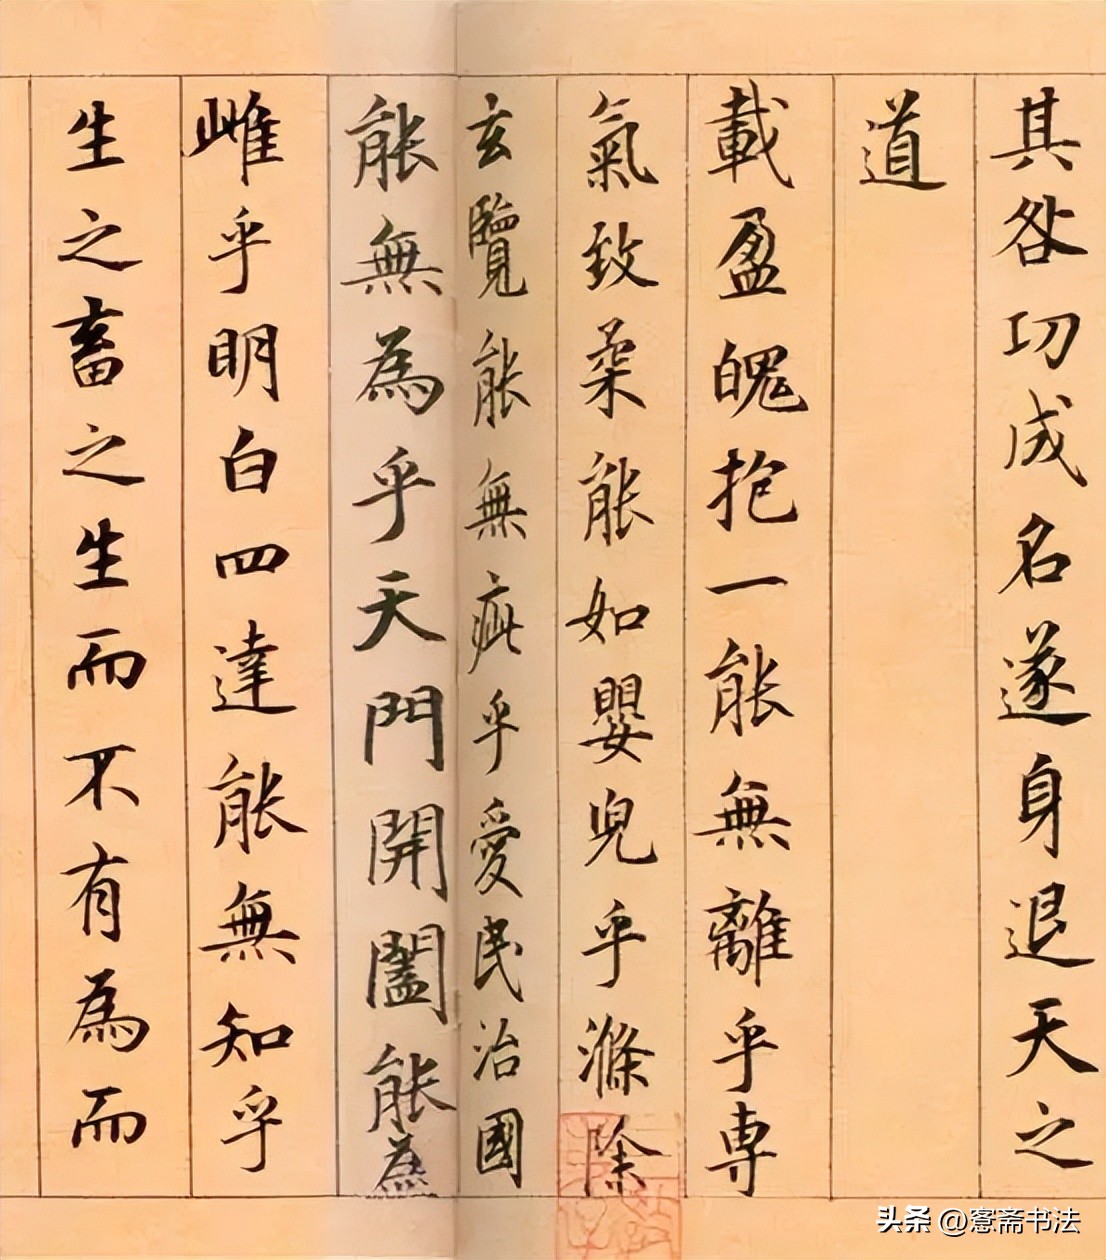 其咎功成名遂身退天之
道
載盈魄抱一能無離乎專
氣致柔能如嬰兒乎滌除
玄覽能無疵乎愛民治國
能無為乎天門開闔能為
雌乎明白四達能無知乎
生之畜之生而不有為而
头条 @窻斋书法